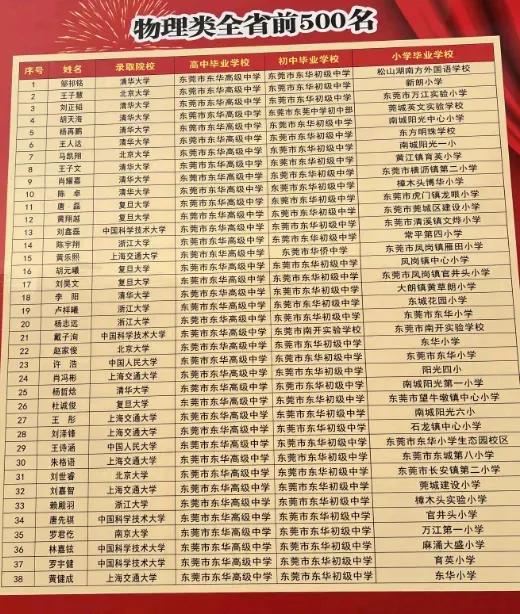 物理类全省前500名
序号 姓名 录取院校 高中毕业学校 初中毕业学校 小学毕业学校
1 邹邦铭 清华大学 东莞市东华高级中学 东莞市东华初级中学 松山湖南方外国语学校
2 王子慧 北京大学 东莞市东华高级中学 东莞市东华初级中学 新朗小学
3 刘正韬 清华大学 东莞市东华高级中学 东莞市东华初级中学 东莞市万江实验小学
4 胡天海 清华大学 东莞市东华高级中学 东莞市东莞中学初中部 莞城英文实验学校
5 杨再鹏 清华大学 东莞市东华高级中学 东莞市东华初级中学 南城阳光中心小学
6 王人达 清华大学 东莞市东华高级中学 东莞市东华初级中学 东方明珠学校
7 马凯翔 北京大学 东莞市东华高级中学 东莞市东华初级中学 南城阳光一小
8 王子文 清华大学 东莞市东华高级中学 东莞市东华初级中学 黄江镇育英小学
9 肖耀嘉 清华大学 东莞市东华高级中学 东莞市东华初级中学 东莞市横沥镇第二小学
10 陈卓 清华大学 东莞市东华高级中学 东莞市东华初级中学 樟木头博华小学
11 唐磊 复旦大学 东莞市东华高级中学 东莞市东华初级中学 东莞市虎门镇龙眼小学
12 黄翔越 复旦大学 东莞市东华高级中学 东莞市东华初级中学 东莞市莞城区建设小学
13 刘鑫磊 中国科学技术大学 东莞市东华高级中学 东莞市东华初级中学 东莞市清溪镇文烨小学
14 陈宇翔 浙江大学 东莞市东华高级中学 东莞市东华初级中学 常平第四小学
15 黄乐熙 上海交通大学 东莞市东华高级中学 东莞市华侨中学 东莞市凤岗镇雁田小学
16 胡元曦 复旦大学 东莞市东华高级中学 东莞市东华初级中学 凤岗镇中心小学
17 刘昊文 复旦大学 东莞市东华高级中学 东莞市东华初级中学 东莞市凤岗镇官井头小学
18 李阳 清华大学 东莞市东华高级中学 东莞市东华初级中学 大朗镇黄草朗小学
19 卢梓曦 浙江大学 东莞市东华高级中学 东莞市东华初级中学 东城花园小学
20 杨志远 浙江大学 东莞市东华高级中学 东莞市东华初级中学 东莞市东华小学
21 戴子洵 中国科学技术大学 东莞市东华高级中学 东莞市南开实验学校 东莞市南开实验学校
22 赵家俊 北京大学 东莞市东华高级中学 东莞市东华初级中学 东华小学
23 许浩 中国人民大学 东莞市东华高级中学 东莞市东华初级中学 东莞市东华小学
24 肖冯彬 上海交通大学 东莞市东华高级中学 东莞市东华初级中学 阳光四小
25 杨哲焓 清华大学 东莞市东华高级中学 东莞市东华初级中学 南城阳光第一小学
26 杜诚俊 复旦大学 东莞市东华高级中学 东莞市东华初级中学 东莞市望牛墩镇中心小学
27 王彤 上海交通大学 东莞市东华高级中学 东莞市东华初级中学 南城阳光六小
28 刘泽锋 上海交通大学 东莞市东华高级中学 东莞市东华初级中学 石龙镇中心小学
29 王诗涵 中国人民大学 东莞市东华高级中学 东莞市东华初级中学 东莞市东华小学生态园校区
30 朱格语 上海交通大学 东莞市东华高级中学 东莞市东华初级中学 东莞市东城第八小学
31 刘世睿 北京大学 东莞市东华高级中学 东莞市东华初级中学 东莞市长安镇第二小学
32 刘嘉智 上海交通大学 东莞市东华高级中学 东莞市东华初级中学 莞城建设小学
33 赖殿羽 浙江大学 东莞市东华高级中学 东莞市东华初级中学 樟木头实验小学
34 唐先祺 中国科学技术大学 东莞市东华高级中学 东莞市东华初级中学 官井头小学
35 罗君仡 南京大学 东莞市东华高级中学 东莞市东华初级中学 万江第一小学
36 林嘉铉 中国科学技术大学 东莞市东华高级中学 东莞市东华初级中学 麻涌大盛小学
37 罗宇健 中国科学技术大学 东莞市东华高级中学 东莞市东华初级中学 育英小学
38 黄健成 上海交通大学 东莞市东华高级中学 东莞市东华初级中学 东华小学